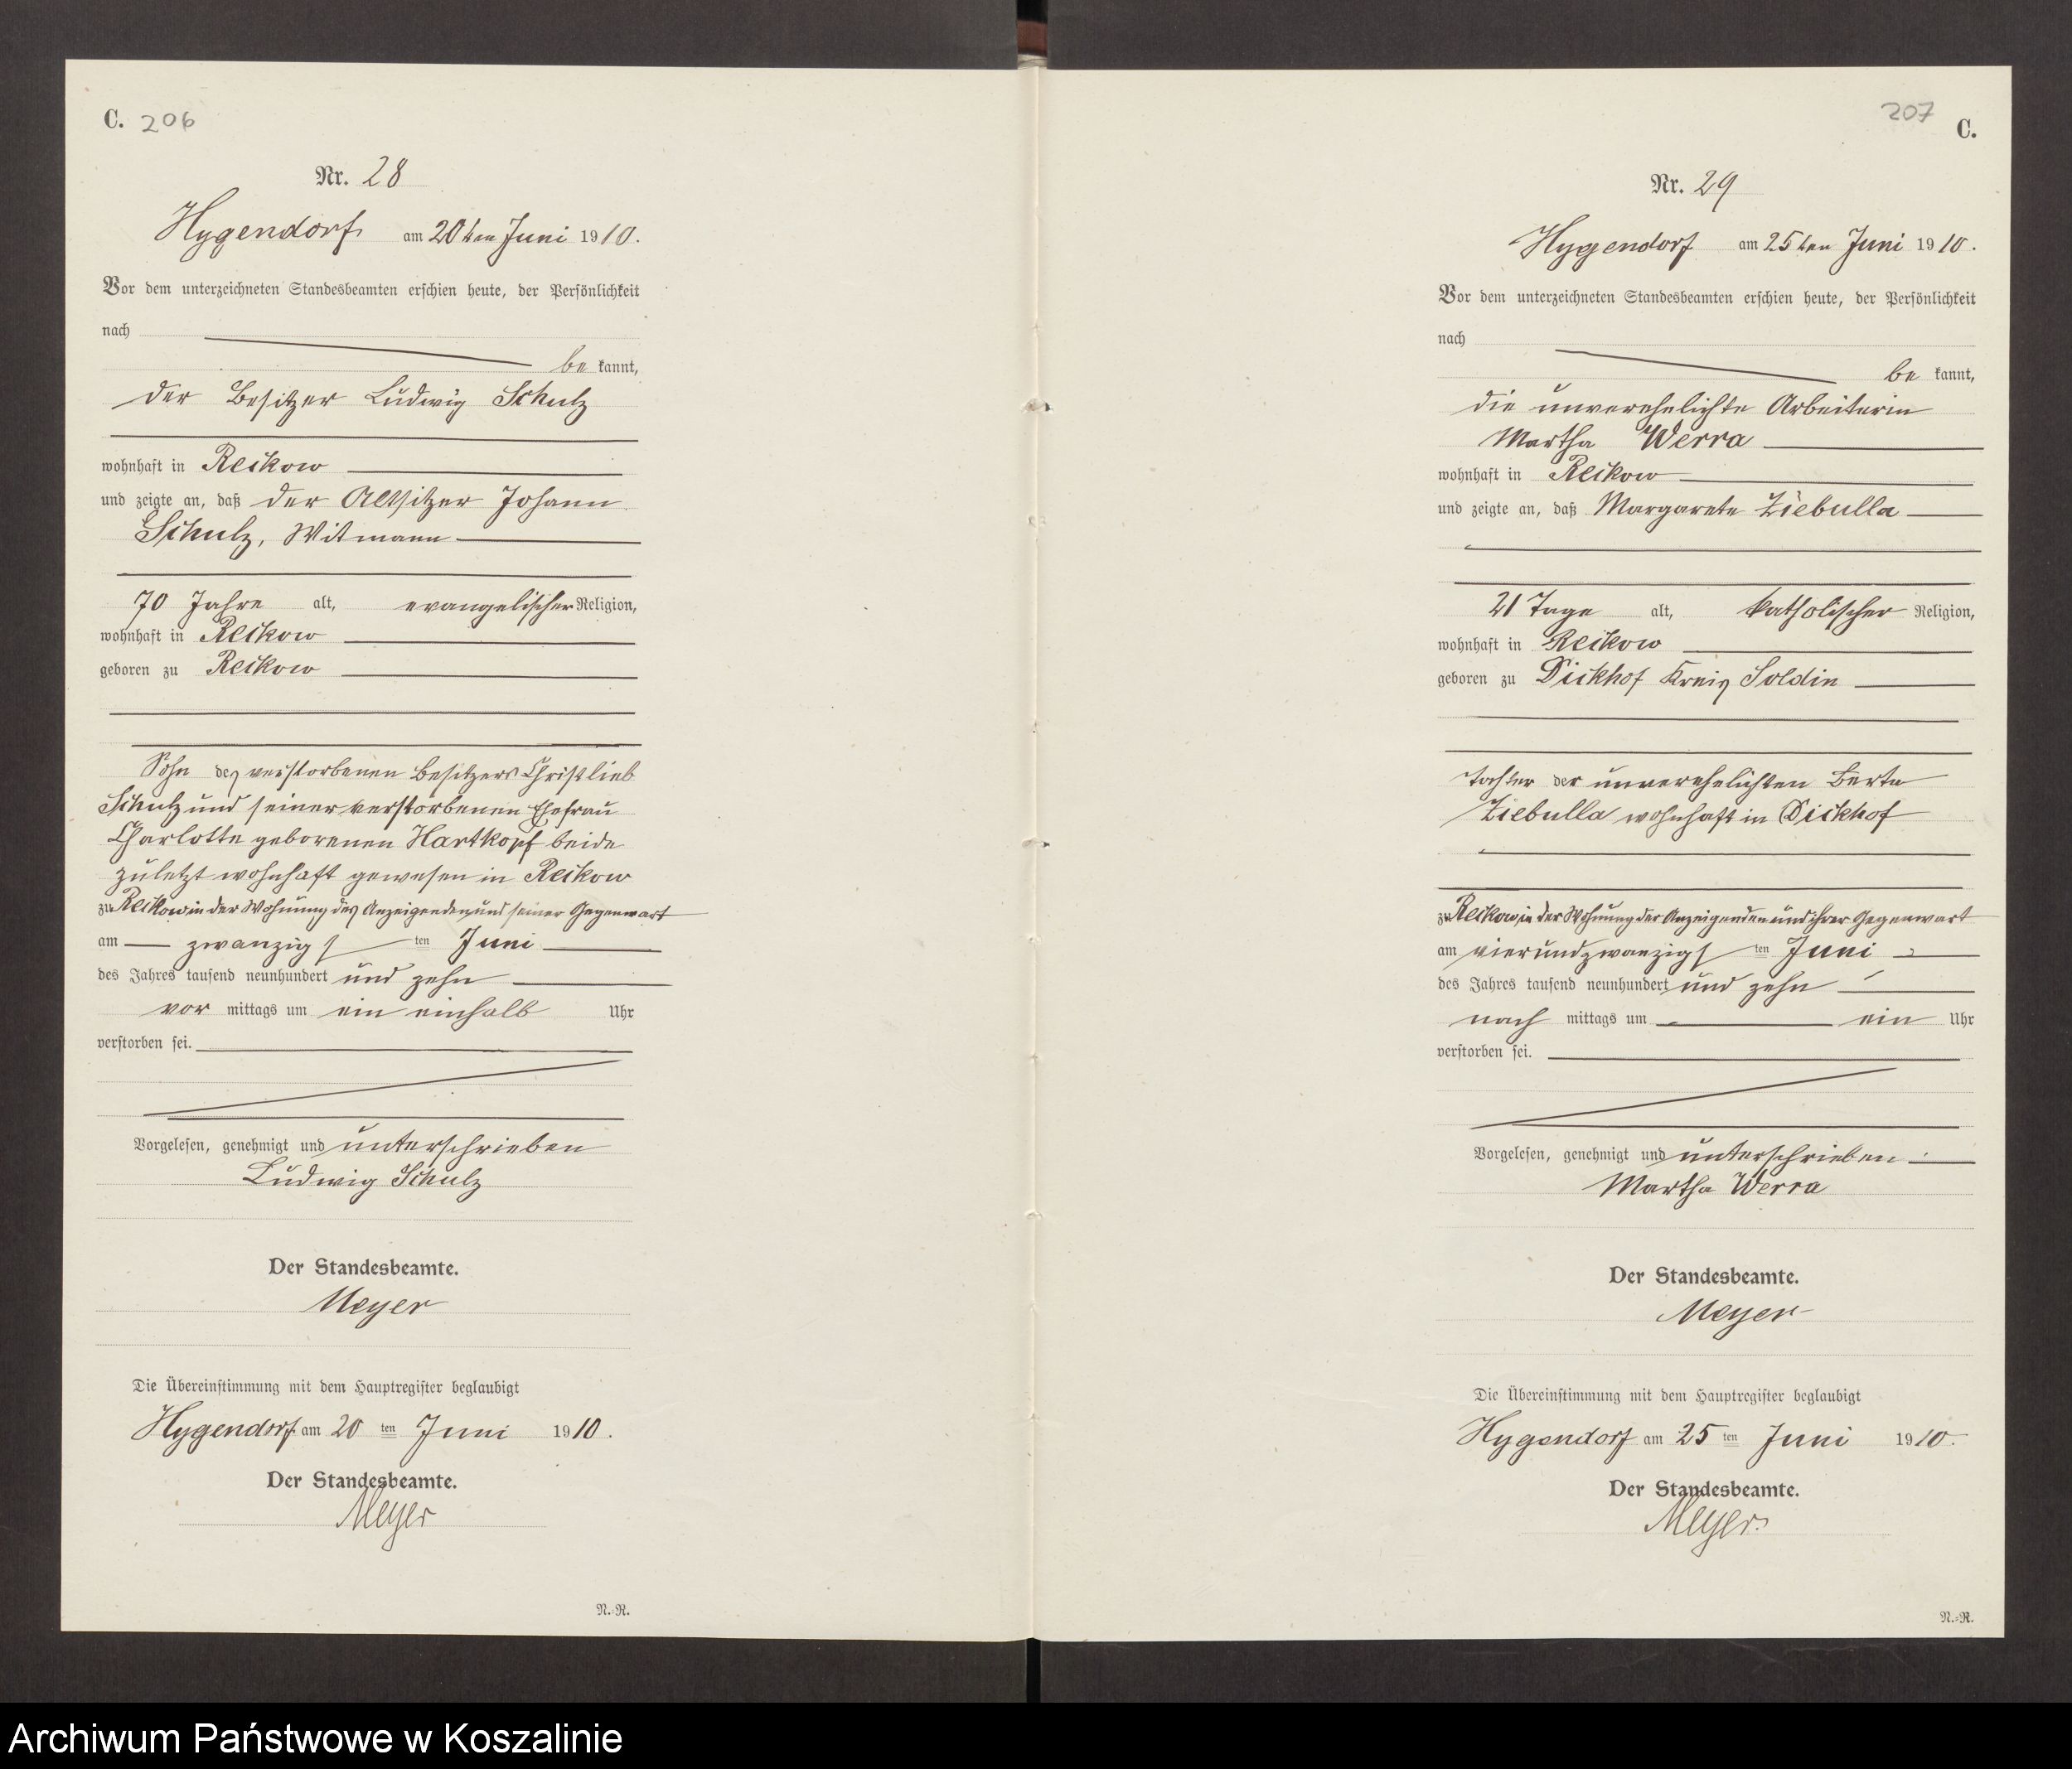 C. 206
Nr. 28
Hygendorf am 20ten Juni 1910.
Vor dem unterzeichneten Standesbeamten erschien heute, der Persönlichkeit
nach
be kannt,
der Besitzer Ludwig Schulz
wohnhaft in Reikow
und zeigte an, daß der Altsitzer Johann
Schulz, Witmann
70 Jahre alt, evangelischer Religion,
wohnhaft in Reikow
geboren zu Reikow
Sohn des verstorbenen Besitzers Christlieb
Schulz und seiner verstorbenen Ehefrau
Charlotte geborenen Hartkopf beide
zuletzt wohnhaft gewesen in Reikow
zu Reikow in der Wohnung des Anzeigenden und seiner Gegenwart
am zwanzigsten Juni
des Jahres tausend neunhundert und zehn
vor mittags um ein einhalb Uhr
verstorben sei.
Vorgelesen, genehmigt und unterschrieben
Ludwig Schulz
Der Standesbeamte.
Meyer
Die Übereinstimmung mit dem Hauptregister beglaubigt
Hygendorf am 20 ten Juni 1910.
Der Standesbeamte.
Meyer
N.-R.
207 C.
Nr. 29
Hygendorf am 25ten Juni 1910.
Vor dem unterzeichneten Standesbeamten erschien heute, der Persönlichkeit
nach
be kannt,
die unverehelichte Arbeiterin
Martha Werra
wohnhaft in Reikow
und zeigte an, daß Margarete Ziebulla
21 Tage alt, katholischer Religion,
wohnhaft in Reikow
geboren zu Dickhof Kreis Soldin
Tochter der unverehelichten Berta
Ziebulla wohnhaft in Dickhof
zu Reikow in der Wohnung der Anzeigenden und ihrer Gegenwart
am vierundzwanzigsten Juni
des Jahres tausend neunhundert und zehn
nach mittags um ein Uhr
verstorben sei.
Vorgelesen, genehmigt und unterschrieben
Martha Werra
Der Standesbeamte.
Meyer
Die Übereinstimmung mit dem Hauptregister beglaubigt
Hygendorf am 25 ten Juni 1910.
Der Standesbeamte.
Meyer
N.-R.
Archiwum Państwowe w Koszalinie